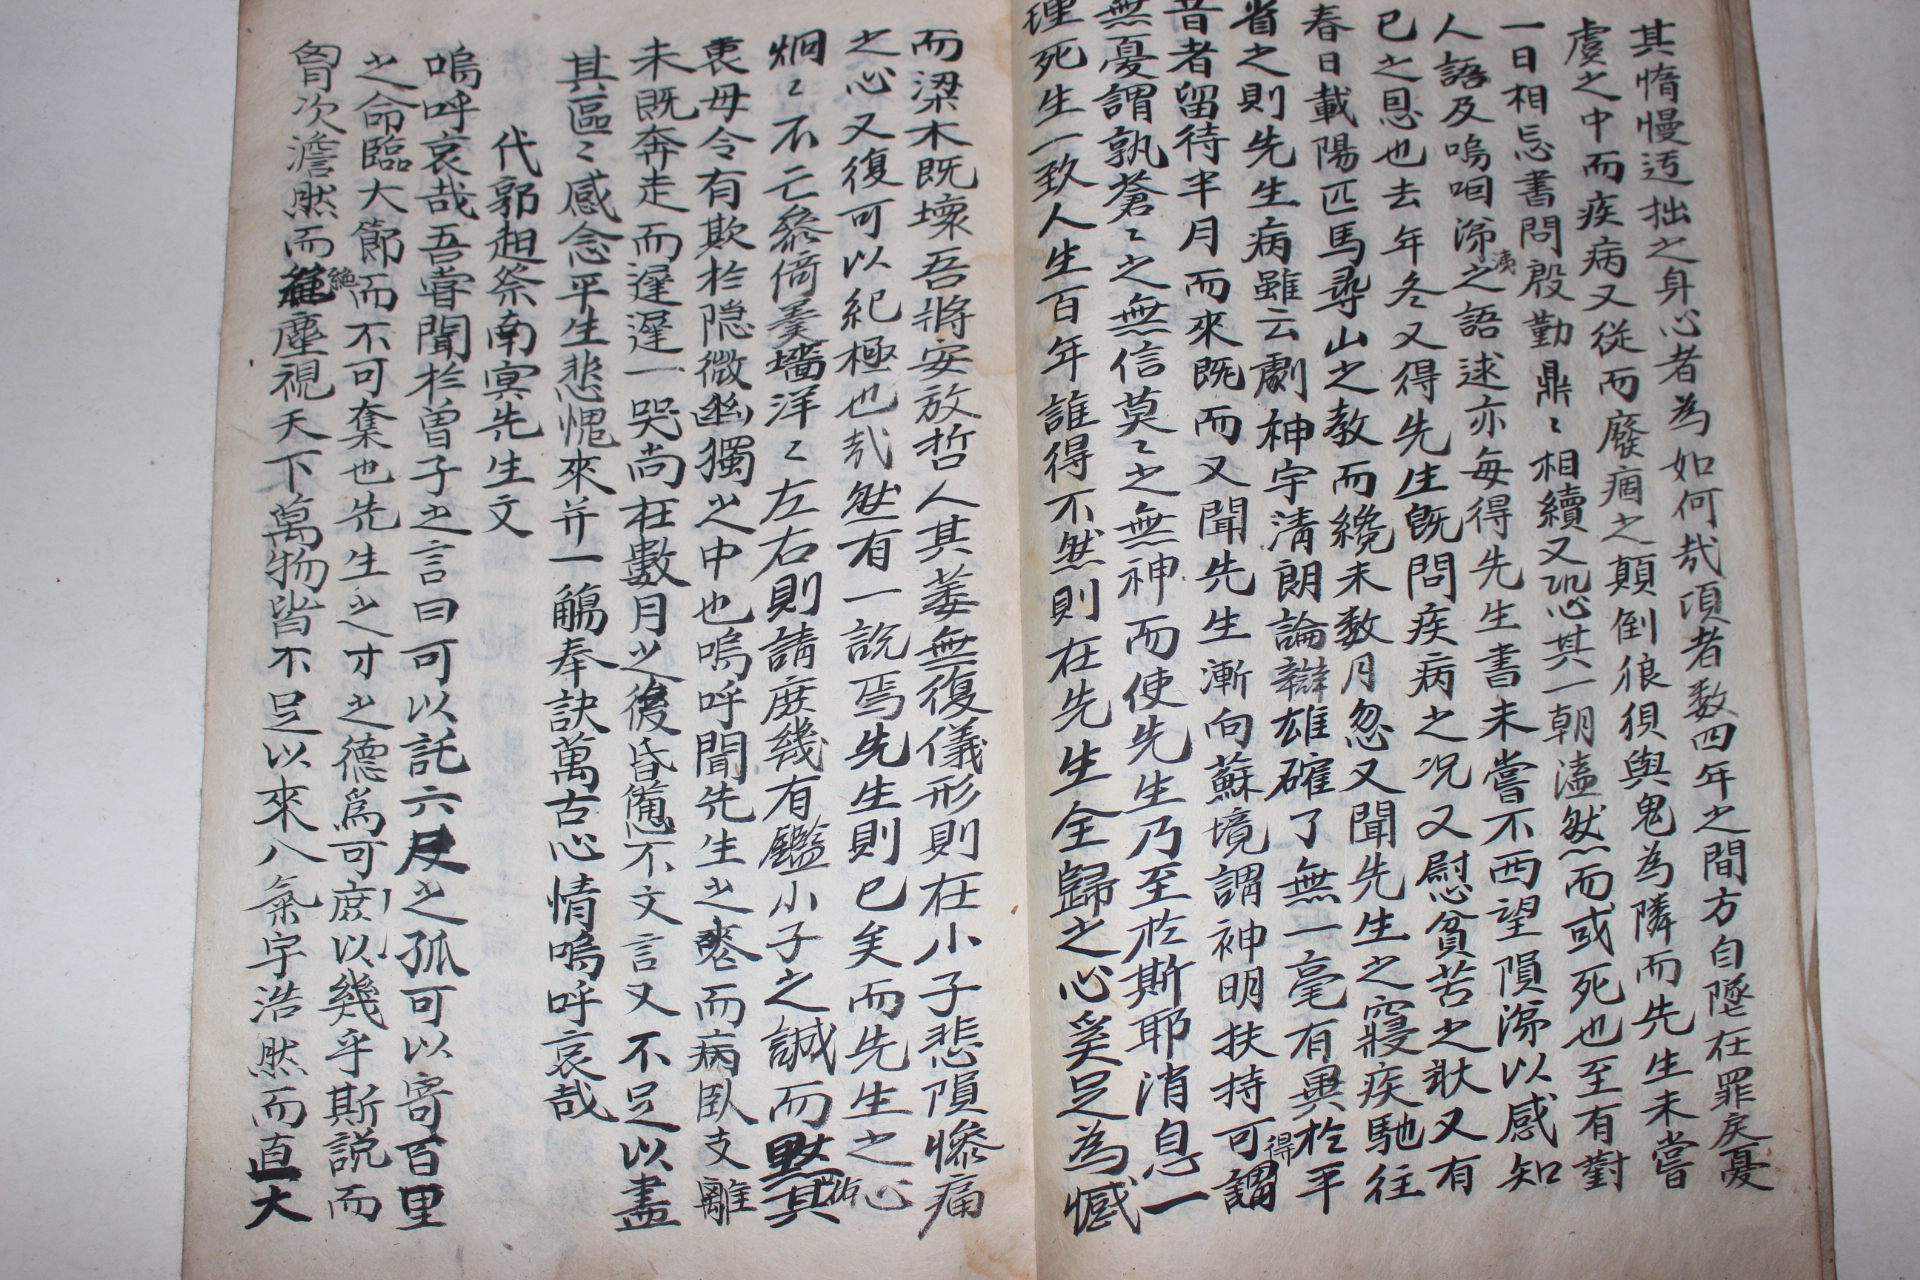 其惰慢迃拙之身心者為如何哉頃者数四年之間方自墜在罪戾憂
虞之中而疾病又從而廢痼之顛倒狼狽與鬼為隣而先生未嘗
一日相忘書問殷勤鼎〻相續又恐其一朝溘然而或死也至有對
人語及嗚咽涕洟之語逑亦每得先生書未嘗不西望隕涕以感知
已之恩也去年冬又得先生旣問疾病之况又慰貧苦之狀又有
春日載陽匹馬尋山之教而纔未数月忽又聞先生之寢疾馳往
省之則先生病雖云劇神宇淸朗論辯雄確了無一毫有異於平
昔者留待半月而來既而又聞先生漸向蘇境謂神明扶持可得謂
無憂謂孰蒼〻之無信莫〻之無神而使先生乃至於斯耶消息一
理死生一致人生百年誰得不然則在先生全歸之心奚足為憾
而梁木既壞吾將安放哲人其萎無復儀形則在小子悲隕慘痛
之心又復可以紀極也哉然有一說焉先生則已矣而先生之心
炯〻不亡叅倚羹墻洋〻左右則請庶幾有鑑小子之誠而默其
衷毋令有欺於隐微幽獨之中也嗚呼聞先生之喪而病臥支離
未既奔走而遲遲一哭尚在數月之後昏憊不文言又不足以盡
其區〻感念平生悲愧來并一觴奉訣萬古心情嗚呼哀哉
代郭趄祭南冥先生文
嗚呼哀哉吾嘗聞於曽子之言曰可以託六尺之孤可以寄百里
之命臨大節而不可奪也先生之才之德爲可庶以幾乎斯説而
胷次澹然而絶塵視天下萬物皆不足以來八氣宇浩然而直大